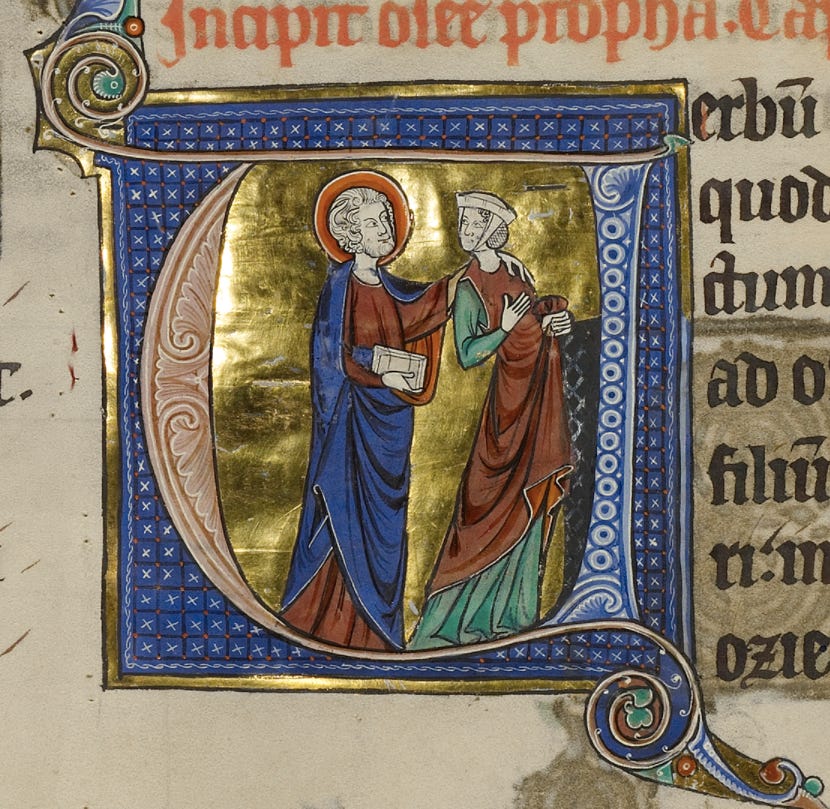 Incipit osee propha. Cap
Verbū
quod
ctum
ad o
filiū
ri:m
ozie